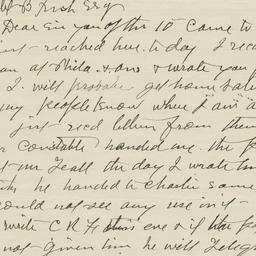 W B Irish Esq
Dear Sir you of the 10 came to
reached here to day I recd
an at Phila & ans & wrote you
I. will probabe get home Satu
my people know where I am a
just recd letters from them
Constable handed me. the p
the day I wrote him
he handed to Charlie same
could not see any use in y
write C R H this eve & if the pa
not given him he will Telegr